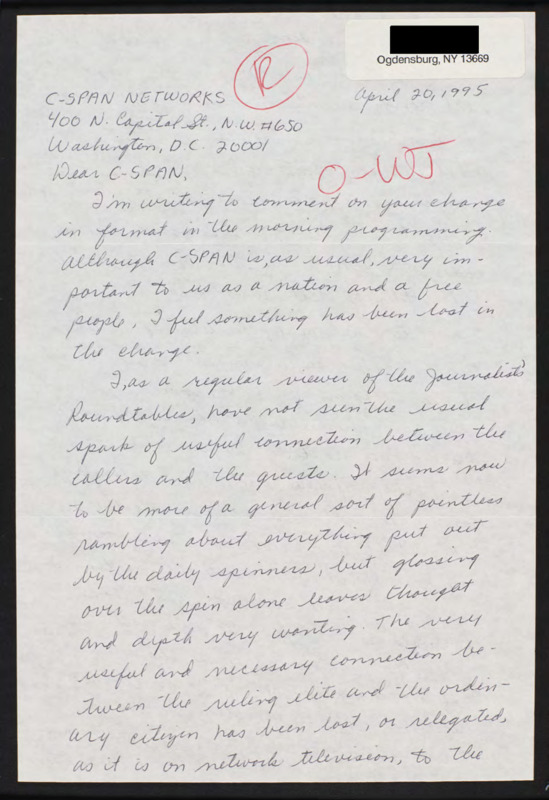 Ogdensburg, NY 13669
R
April 20, 1995
C-SPAN NETWORKS
400 N. Capital St., N.W. #650
Washington, D.C. 20001
O-WJ
Dear C-SPAN,
I'm writing to comment on your change
in format in the morning programming.
Although C-SPAN is, as usual, very im-
portant to us as a nation and a free
people, I feel something has been lost in
the change.
I, as a regular viewer of the Journalist's
Roundtables, have not seen the usual
spark of useful connection between the
callers and the guests. It seems now
to be more of a general sort of pointless
rambling about everything put out
by the daily spinners, but glossing
over the spin alone leaves thought
and depth very wanting. The very
useful and necessary connection be-
tween the ruling elite and the ordin-
ary citizen has been lost, or relegated,
as it is on network television, to the